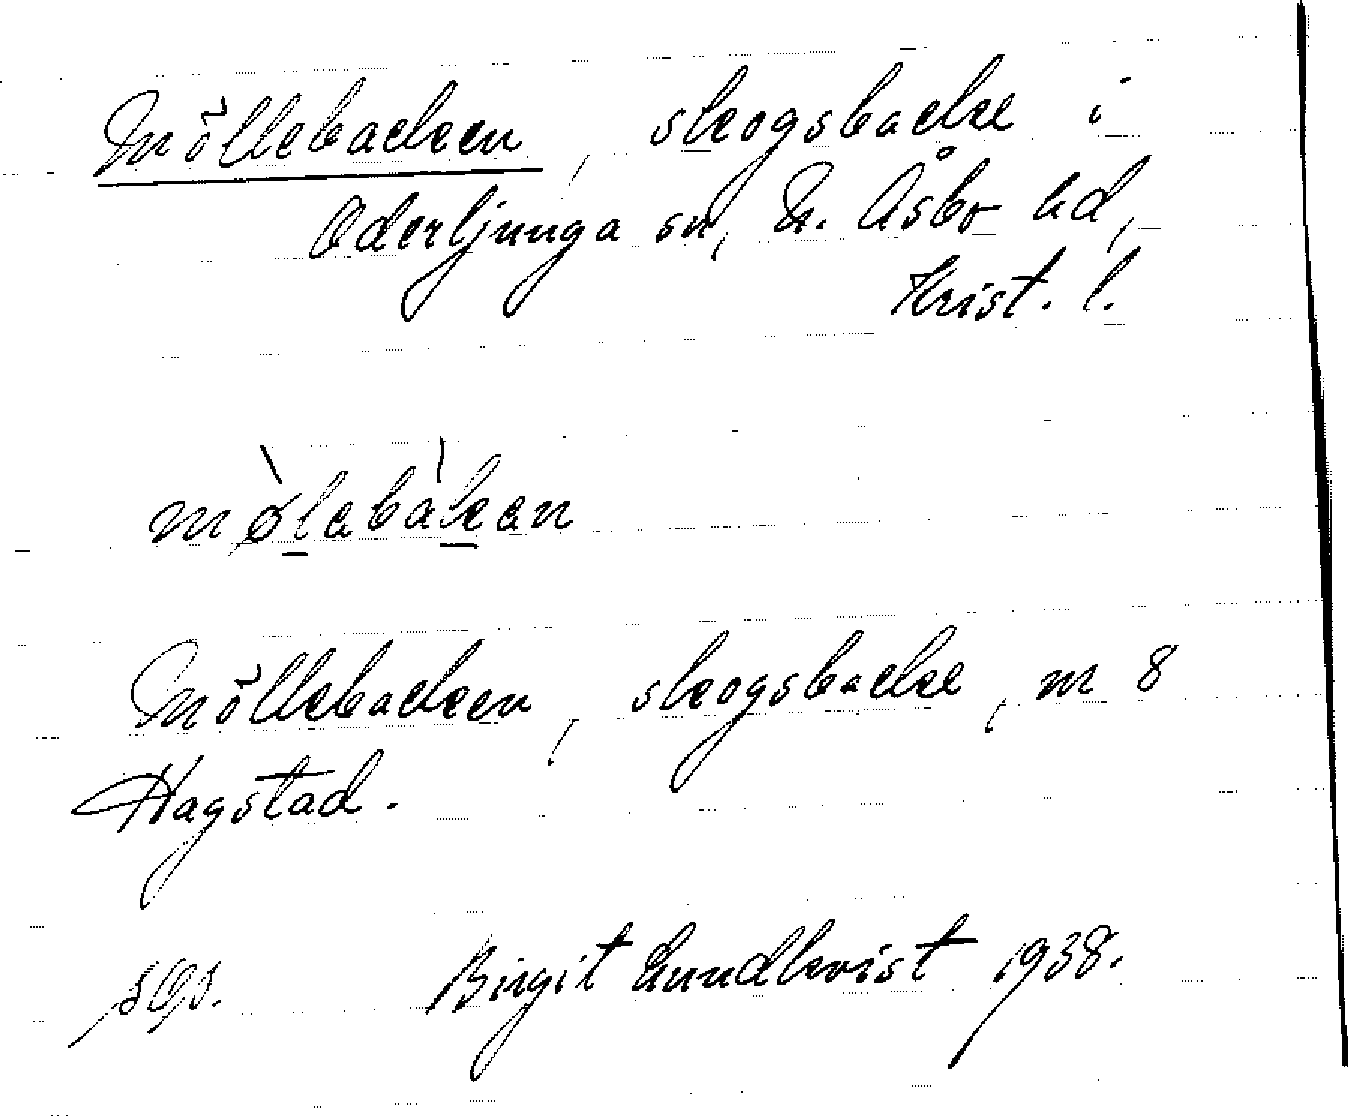 Möllebacken, skogsbacke i
Oderljunga sn, N. Åsbo hd,
Krist. l.
mø̀lebàkan
Möllebacken, skogsbacke, m 8
Hagstad.
Birgit Lundkvist 1938.